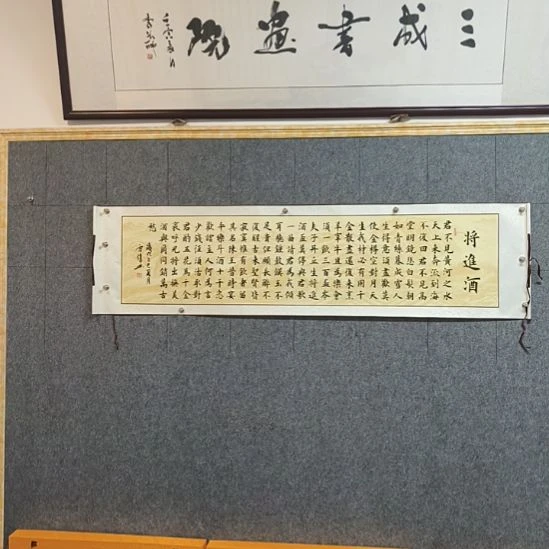 三成書畫院
壬寅夏月
将進酒
君不見黃河之水
天上來奔流到海
不復回君不見高
堂明鏡悲白髮朝
如青絲暮成雪人
生得意須盡歡莫
使金樽空對月天
生我材必有用千
金散盡還復來烹
羊宰牛且為樂會
須一飲三百盃岑
夫子丹丘生將進
酒盃莫停與君歌
一曲請君為我傾
耳聽鐘鼓饌玉不
足貴但願長醉不
復醒古來聖賢皆
寂寞惟有飲者留
其名陳王昔時宴
平樂斗酒十千恣
歡謔主人何為言
少錢徑須沽取對
君酌五花馬千金
裘呼兒將出換美
酒與爾同銷萬古
愁